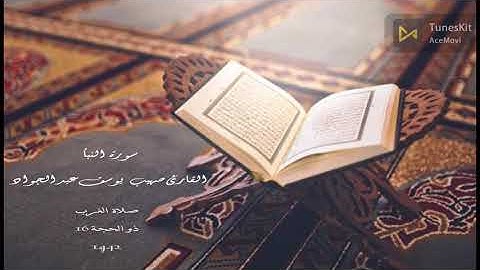 TunesKit
AceMovi
سورة النبأ
القارئ صهيب يوسف عبدالجواد
صلاة المغرب
ذو الحجة 16
1442